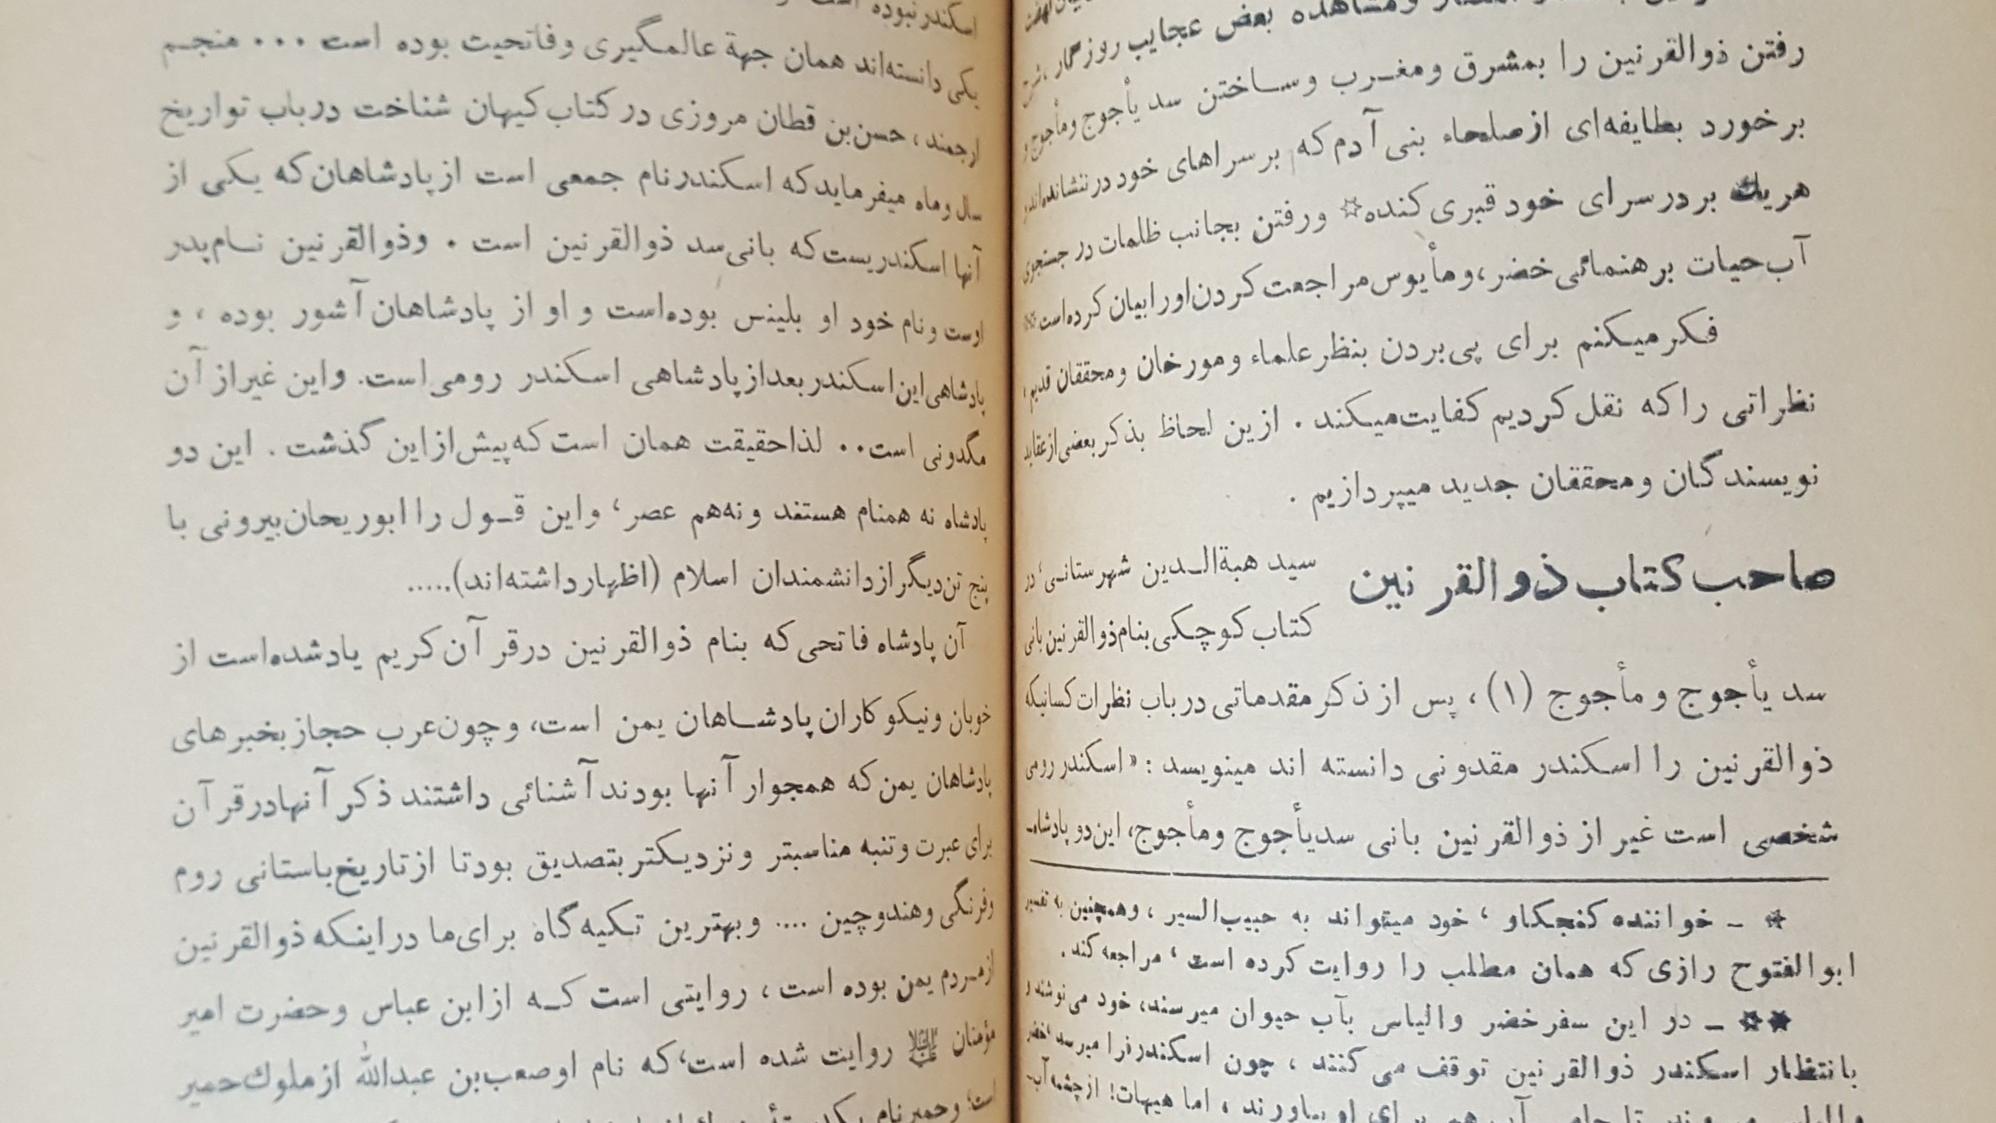 ومشاهده بعض عجایب روزگار ، شرح
رفتن ذوالقرنین را بمشرق ومغرب وساختن سد یأجوج ومأجوج و
برخورد بطایفه‌ای ازصلحاء بنی آدم که برسراهای خود درننشانده‌اند و
هریك بردرسرای خود قبری کنده☆ ورفتن بجانب ظلمات در جستجوی
آب‌حیات برهنمائی خضر،ومأیوس مراجعت کردن اورا بیان کرده‌است☆☆
فکر میکنم برای پی بردن بنظر علماء ومورخان ومحققان قدیم ،
نظراتی را که نقل کردیم کفایت میکند . ازین لحاظ بذکر بعضی ازعقاید
نویسندگان ومحققان جدید میپردازیم .
صاحب کتاب ذوالقرنین
سید هبةالدین شهرستانی، در
کتاب کوچکی بنام ذوالقرنین بانی
سد یأجوج و مأجوج (۱) ، پس از ذکر مقدماتی درباب نظرات کسانیکه
ذوالقرنین را اسکندر مقدونی دانسته اند مینویسد : «اسکندر رومی
شخصی است غیر از ذوالقرنین بانی سدیأجوج ومأجوج، این‌دو پادشاه-
☆ - خواننده کنجکاو ، خود میتواند به حبیب‌السیر ، وهمچنین به تفسیر
ابوالفتوح رازی که همان مطلب را روایت کرده است ، مراجعه کند .
☆☆ - در این سفر خضر والیاس بآب حیوان میرسند، خود می‌نوشند و
بانتظار اسکندر ذوالقرنین توقف می کنند ، چون اسکندر فرا میرسد خضر
آب هم برای او بیاورند ، اما هیهات! از چشمه آب-
اسکندر نبوده است
یکی دانسته‌اند همان جهة عالمگیری وفاتحیت بوده است ... منجم
ارجمند ، حسن‌بن قطان مروزی در کتاب کیهان شناخت درباب تواریخ
سال وماه میفرماید که اسکندر نام جمعی است از پادشاهان که یکی از
آنها اسکندریست که بانی سد ذوالقرنین است . وذوالقرنین نام پدر
اوست ونام خود او بلینس بوده‌است و او از پادشاهان آشور بوده ، و
پادشاهی این اسکندر بعداز پادشاهی اسکندر رومی است. واین غیراز آن
مگدونی است .. لذا حقیقت همان است که پیش ازاین گذشت . این دو
پادشاه نه همنام هستند و نه‌هم عصر، واین قول را ابوریحان بیرونی با
پنج تن دیگر از دانشمندان اسلام (اظهار داشته‌اند).....
آن پادشاه فاتحی که بنام ذوالقرنین درقرآن کریم یاد شده‌است از
خوبان ونیکوکاران پادشاهان یمن است، وچون عرب حجاز بخبرهای
پادشاهان یمن که همجوار آنها بودند آشنائی داشتند ذکر آنها درقرآن
برای عبرت وتنبه مناسبتر ونزدیکتر بتصدیق بود تا از تاریخ باستانی روم
وفرنگی وهندوچین .... وبهترین تکیه‌گاه برای ما دراینکه ذوالقرنین
ازمردم یمن بوده است ، روایتی است که ازابن عباس وحضرت امیر
مؤمنان علیه‌السلام روایت شده است، که نام اوصعب‌بن عبدالله ازملوك حمیر
است، وحمیر نام یکی